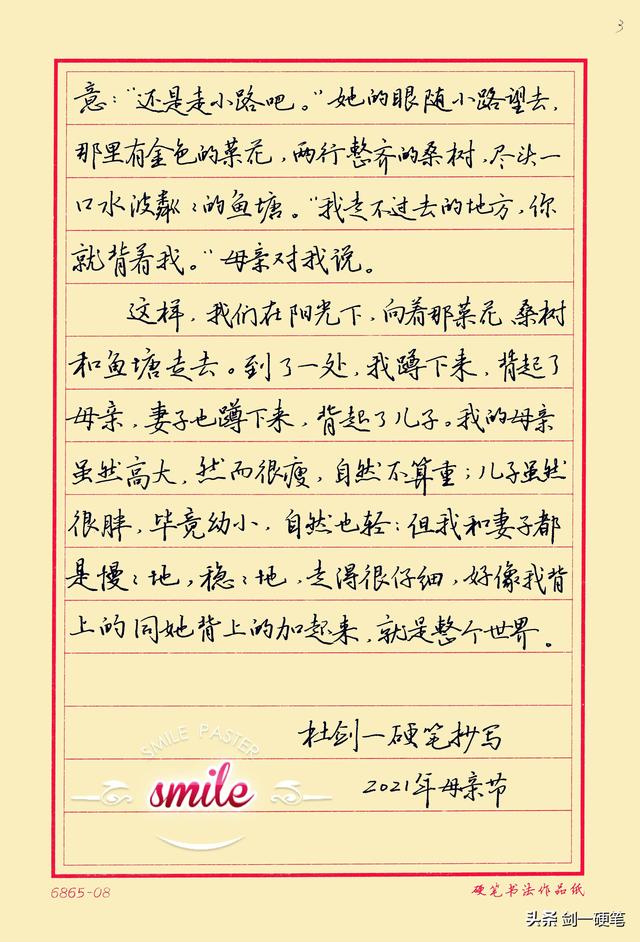 3
意：“还是走小路吧。”她的眼随小路望去，
那里有金色的菜花，两行整齐的桑树，尽头一
口水波粼〻的鱼塘。“我走不过去的地方，你
就背着我。”母亲对我说。
这样，我们在阳光下，向着那菜花、桑树
和鱼塘走去。到了一处，我蹲下来，背起了
母亲，妻子也蹲下来，背起了儿子。我的母亲
虽然高大，然而很瘦，自然不算重；儿子虽然
很胖，毕竟幼小，自然也轻：但我和妻子都
是慢〻地，稳〻地，走得很仔细，好像我背
上的同她背上的加起来，就是整个世界。
杜剑一硬笔抄写
2021年母亲节
SMILE PASTER
smile
6865-08
硬笔书法作品纸
头条 剑一硬笔